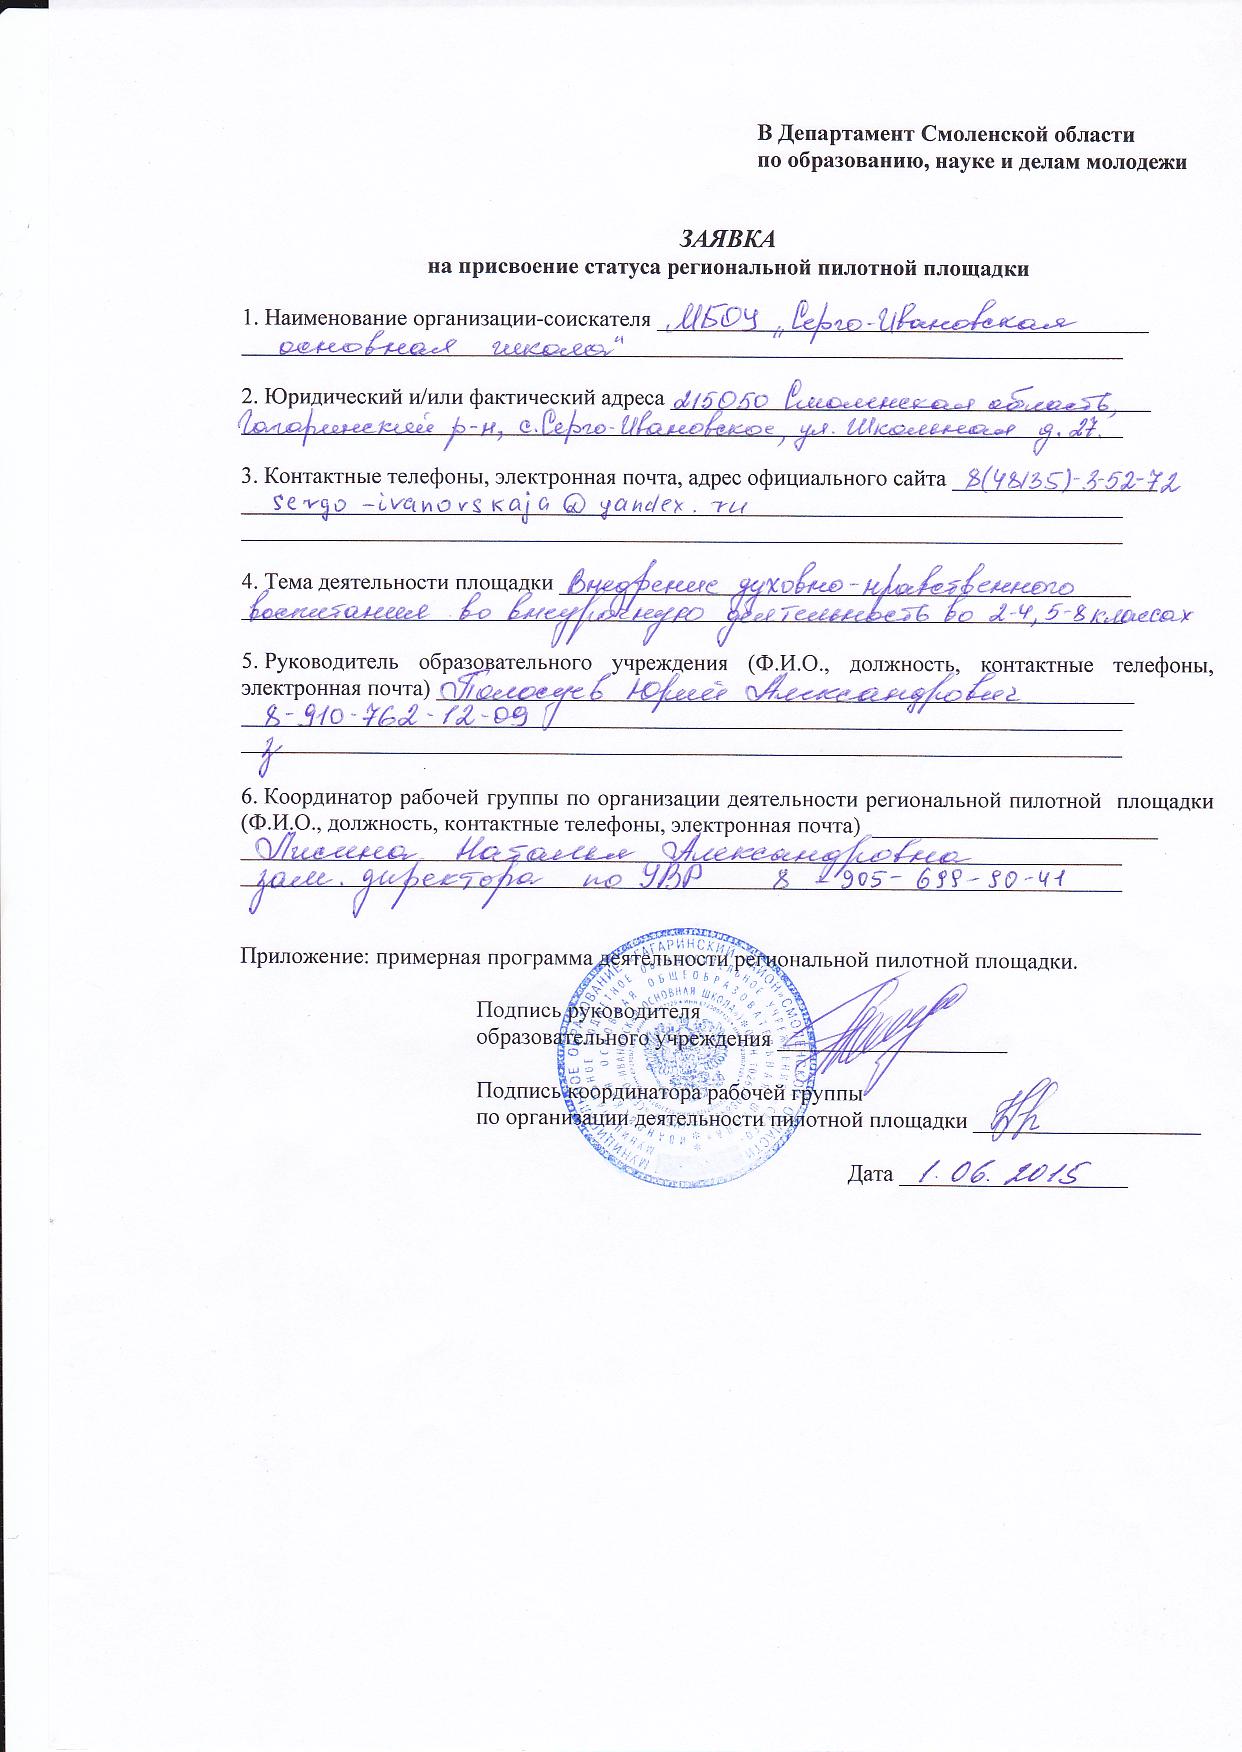 В Департамент Смоленской области
по образованию, науке и делам молодежи
ЗАЯВКА
на присвоение статуса региональной пилотной площадки
1. Наименование организации-соискателя МБОУ „Серго-Ивановская
основная школа"
2. Юридический и/или фактический адреса 215050 Смоленская область,
Гагаринский р-н, с.Серго-Ивановское, ул. Школьная д. 27.
3. Контактные телефоны, электронная почта, адрес официального сайта 8(48135)-3-52-72
sergo-ivanovskaja@yandex.ru
4. Тема деятельности площадки Внедрение духовно-нравственного
воспитания во внеурочную деятельность во 2-4, 5-8 классах
5. Руководитель образовательного учреждения (Ф.И.О., должность, контактные телефоны,
электронная почта) Юрий Александрович
8-910-762-12-09
6. Координатор рабочей группы по организации деятельности региональной пилотной площадки
(Ф.И.О., должность, контактные телефоны, электронная почта)
Лисина Наталья Александровна
зам. директора по УВР 8-905-699-90-41
Приложение: примерная программа деятельности региональной пилотной площадки.
Подпись руководителя
образовательного учреждения
Подпись координатора рабочей группы
по организации деятельности пилотной площадки
Дата 1.06.2015